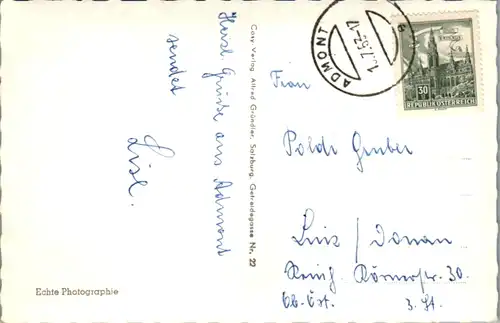 Herzl. Grüße aus Admont
sendet
Lisl.
Echte Photographie
Cosy-Verlag Alfred Gründler, Salzburg, Getreidegasse Nr. 22
ADMONT
a
30
REPUBLIK ÖSTERREICH
Frau
Poldi Gruber
Linz / Donau
Körnerstr. 30.
Ob. Öst. 3. St.